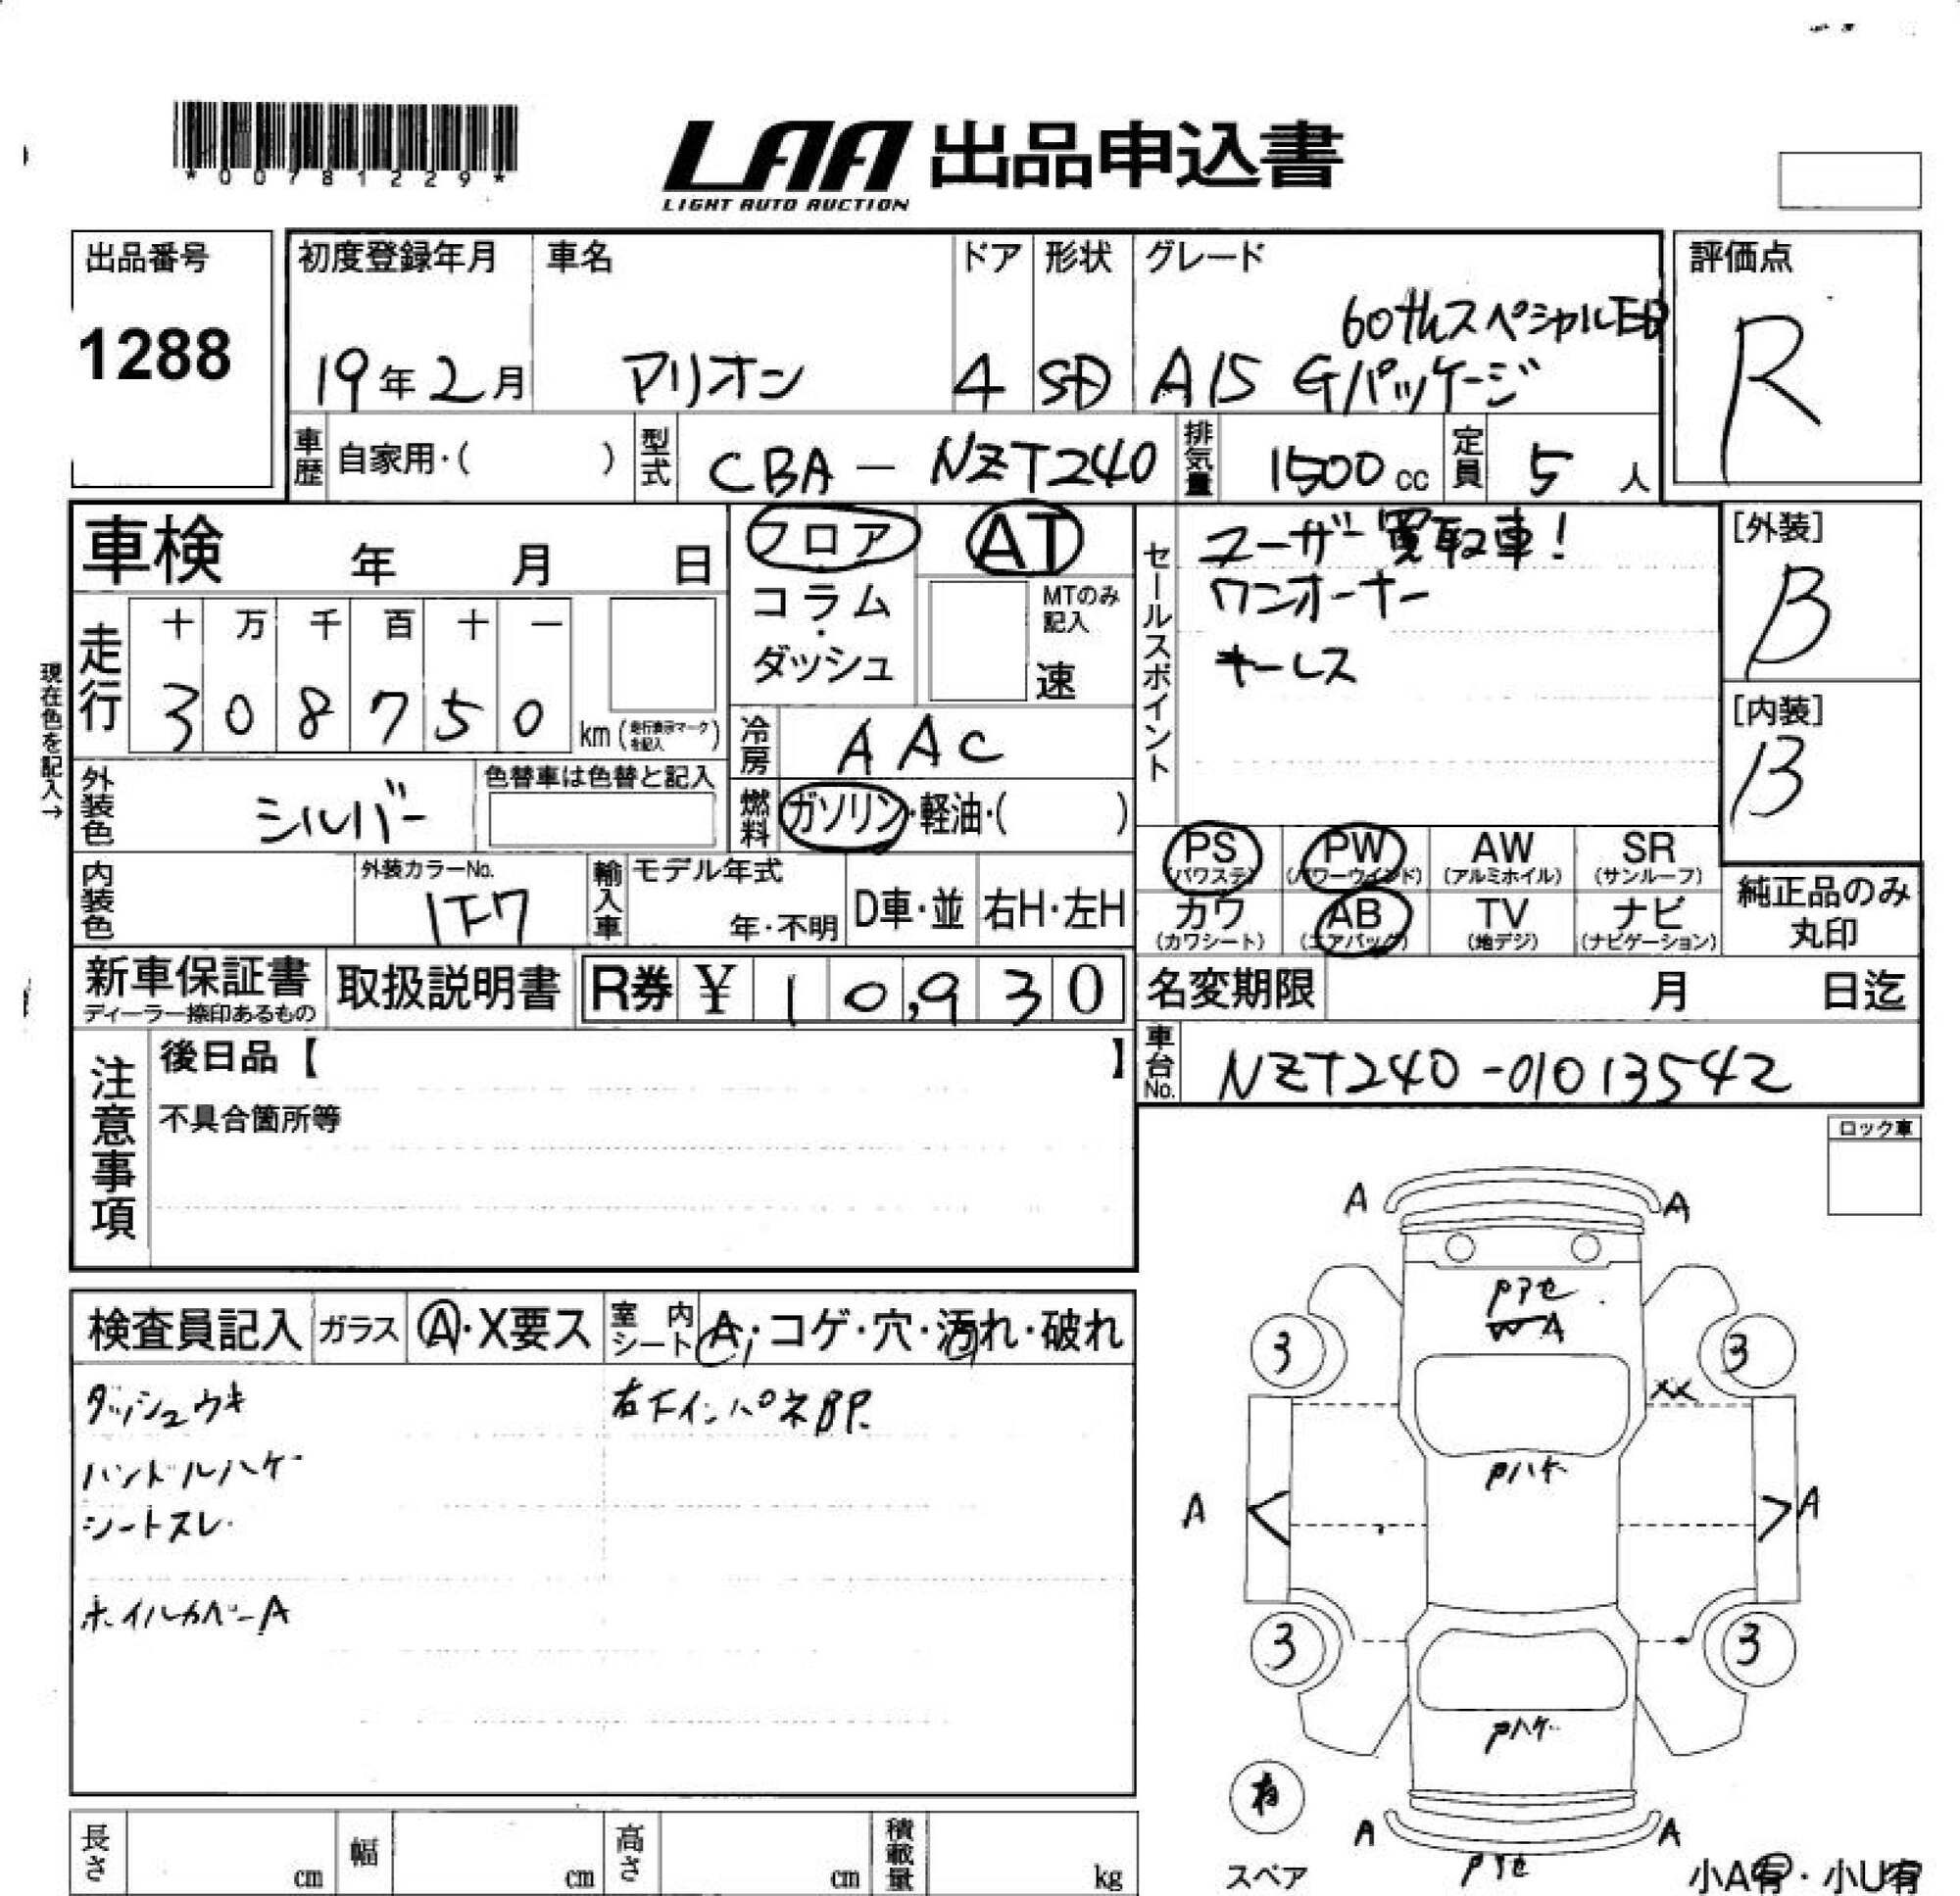 *00781229*
LAA 出品申込書
LIGHT AUTO AUCTION
出品番号
1288
初度登録年月
19年2月
車名
アリオン
ドア
4
形状
SD
グレード
60thスペシャルED
A15 Gパッケージ
評価点
R
車歴 自家用・( )
型式 CBA - NZT240
排気量 1500cc
定員 5人
車検 年 月 日
走行
十 万 千 百 十 一
3 0 8 7 5 0
km(走行表示マークを記入)
現在色を記入→
外装色 シルバー
色替車は色替と記入
内装色
外装カラーNo.
1F7
輸入車
モデル年式
年・不明
D車・並
右H・左H
フロア
コラム
・
ダッシュ
AT
MTのみ
記入
速
冷房 AAC
燃料 ガソリン・軽油・( )
セールスポイント
ユーザー買取車!
ワンオーナー
キーレス
[外装]
B
[内装]
B
PS
(パワステ)
PW
(パワーウインド)
AW
(アルミホイル)
SR
(サンルーフ)
カワ
(カワシート)
AB
(エアバッグ)
TV
(地デジ)
ナビ
(ナビゲーション)
純正品のみ
丸印
新車保証書
ディーラー捺印あるもの
取扱説明書
R券 ¥10,930
名変期限 月 日迄
注意事項
後日品【 】
不具合箇所等
車台No. NZT240-01013542
ロック車
検査員記入
ガラス
A・X要ス
室内シート
A・コゲ・穴・汚れ・破れ
ダッシュウキ
右下インパネBP.
ハンドルハゲ
シートスレ
ホイルカバーA
A A
Pアセ
A
3 3
XX
Pハゲ
A A
3 3
Pハゲ
有
スペア
A A
Pアセ
小A有・小U有
長さ cm
幅 cm
高さ cm
積載量 kg